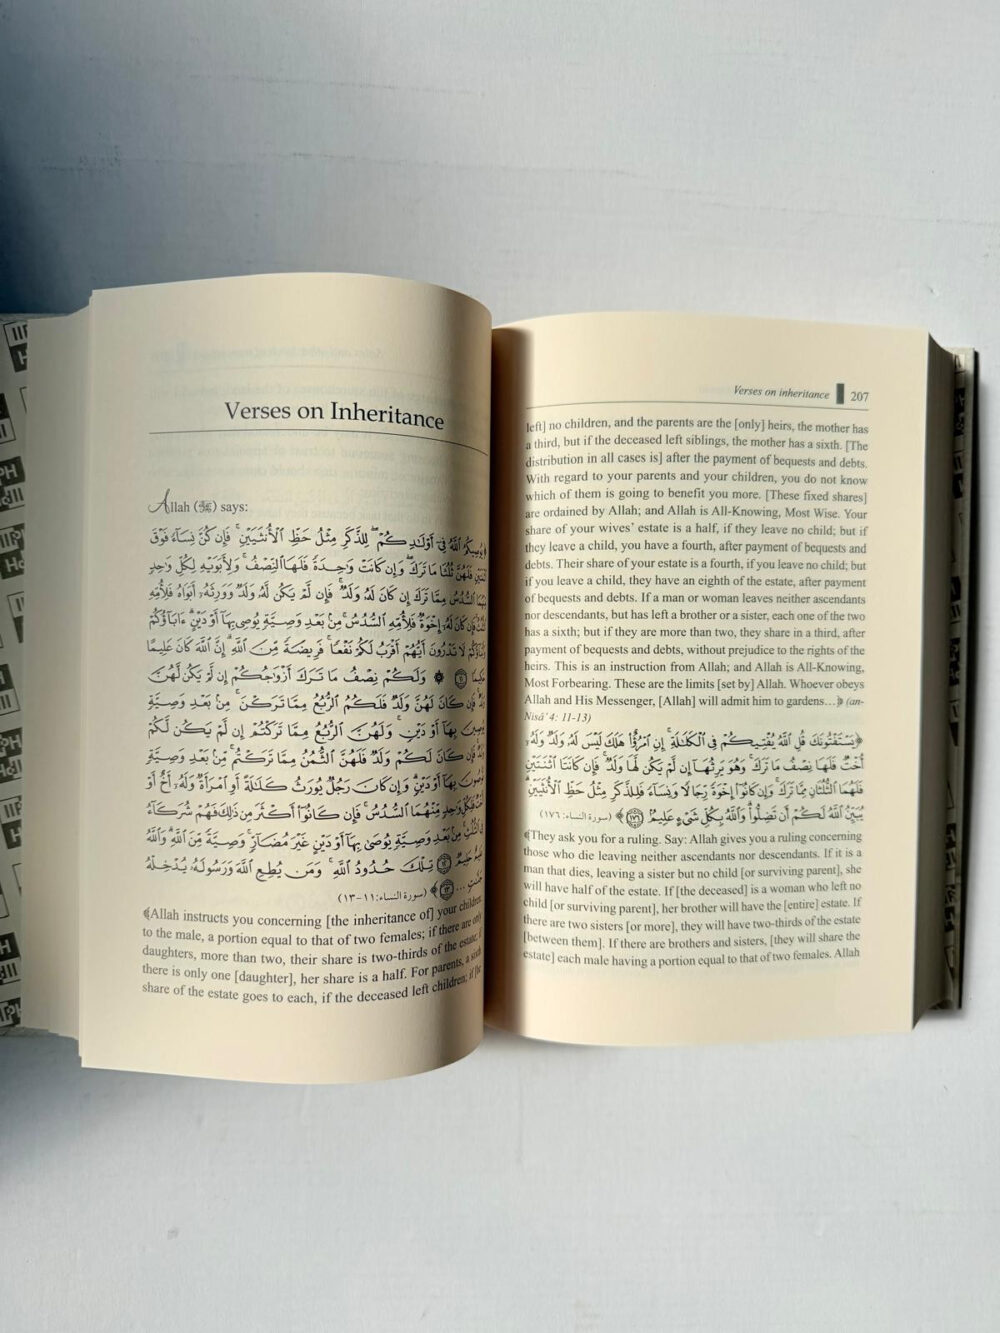 Verses on Inheritance
Allah (ﷻ) says:
﴿يُوصِيكُمُ ٱللَّهُ فِىٓ أَوْلَٰدِكُمْ ۖ لِلذَّكَرِ مِثْلُ حَظِّ ٱلْأُنثَيَيْنِ ۚ فَإِن كُنَّ نِسَآءً فَوْقَ
ٱثْنَتَيْنِ فَلَهُنَّ ثُلُثَا مَا تَرَكَ ۖ وَإِن كَانَتْ وَٰحِدَةً فَلَهَا ٱلنِّصْفُ ۚ وَلِأَبَوَيْهِ لِكُلِّ وَٰحِدٍ
مِّنْهُمَا ٱلسُّدُسُ مِمَّا تَرَكَ إِن كَانَ لَهُۥ وَلَدٌ ۚ فَإِن لَّمْ يَكُن لَّهُۥ وَلَدٌ وَوَرِثَهُۥٓ أَبَوَاهُ فَلِأُمِّهِ
ٱلثُّلُثُ ۚ فَإِن كَانَ لَهُۥٓ إِخْوَةٌ فَلِأُمِّهِ ٱلسُّدُسُ ۚ مِنۢ بَعْدِ وَصِيَّةٍ يُوصِى بِهَآ أَوْ دَيْنٍ ۗ ءَابَآؤُكُمْ
وَأَبْنَآؤُكُمْ لَا تَدْرُونَ أَيُّهُمْ أَقْرَبُ لَكُمْ نَفْعًا ۚ فَرِيضَةً مِّنَ ٱللَّهِ ۗ إِنَّ ٱللَّهَ كَانَ عَلِيمًا
حَكِيمًا ﴿١١﴾ ۞ وَلَكُمْ نِصْفُ مَا تَرَكَ أَزْوَٰجُكُمْ إِن لَّمْ يَكُن لَّهُنَّ
وَلَدٌ ۚ فَإِن كَانَ لَهُنَّ وَلَدٌ فَلَكُمُ ٱلرُّبُعُ مِمَّا تَرَكْنَ ۚ مِنۢ بَعْدِ وَصِيَّةٍ
يُوصِينَ بِهَآ أَوْ دَيْنٍ ۚ وَلَهُنَّ ٱلرُّبُعُ مِمَّا تَرَكْتُمْ إِن لَّمْ يَكُن لَّكُمْ
وَلَدٌ ۚ فَإِن كَانَ لَكُمْ وَلَدٌ فَلَهُنَّ ٱلثُّمُنُ مِمَّا تَرَكْتُم ۚ مِّنۢ بَعْدِ وَصِيَّةٍ
تُوصُونَ بِهَآ أَوْ دَيْنٍ ۗ وَإِن كَانَ رَجُلٌ يُورَثُ كَلَٰلَةً أَوِ ٱمْرَأَةٌ وَلَهُۥٓ أَخٌ أَوْ
أُخْتٌ فَلِكُلِّ وَٰحِدٍ مِّنْهُمَا ٱلسُّدُسُ ۚ فَإِن كَانُوٓا۟ أَكْثَرَ مِن ذَٰلِكَ فَهُمْ شُرَكَآءُ
فِى ٱلثُّلُثِ ۚ مِنۢ بَعْدِ وَصِيَّةٍ يُوصَىٰ بِهَآ أَوْ دَيْنٍ غَيْرَ مُضَآرٍّ ۚ وَصِيَّةً مِّنَ ٱللَّهِ ۗ وَٱللَّهُ
عَلِيمٌ حَلِيمٌ ﴿١٢﴾ تِلْكَ حُدُودُ ٱللَّهِ ۚ وَمَن يُطِعِ ٱللَّهَ وَرَسُولَهُۥ يُدْخِلْهُ
جَنَّٰتٍ ... ﴿١٣﴾﴾ (سورة النساء: ١١-١٣)
﴾Allah instructs you concerning [the inheritance of] your children:
to the male, a portion equal to that of two females; if there are only
daughters, more than two, their share is two-thirds of the estate; if
there is only one [daughter], her share is a half. For parents, a sixth
share of the estate goes to each, if the deceased left children; if [he
Verses on inheritance 207
left] no children, and the parents are the [only] heirs, the mother has
a third, but if the deceased left siblings, the mother has a sixth. [The
distribution in all cases is] after the payment of bequests and debts.
With regard to your parents and your children, you do not know
which of them is going to benefit you more. [These fixed shares]
are ordained by Allah; and Allah is All-Knowing, Most Wise. Your
share of your wives' estate is a half, if they leave no child; but if
they leave a child, you have a fourth, after payment of bequests and
debts. Their share of your estate is a fourth, if you leave no child; but
if you leave a child, they have an eighth of the estate, after payment
of bequests and debts. If a man or woman leaves neither ascendants
nor descendants, but has left a brother or a sister, each one of the two
has a sixth; but if they are more than two, they share in a third, after
payment of bequests and debts, without prejudice to the rights of the
heirs. This is an instruction from Allah; and Allah is All-Knowing,
Most Forbearing. These are the limits [set by] Allah. Whoever obeys
Allah and His Messenger, [Allah] will admit him to gardens…﴿ (an-
Nisâ' 4: 11-13)
﴿يَسْتَفْتُونَكَ قُلِ ٱللَّهُ يُفْتِيكُمْ فِى ٱلْكَلَٰلَةِ ۚ إِنِ ٱمْرُؤٌا۟ هَلَكَ لَيْسَ لَهُۥ وَلَدٌ وَلَهُۥٓ
أُخْتٌ فَلَهَا نِصْفُ مَا تَرَكَ ۚ وَهُوَ يَرِثُهَآ إِن لَّمْ يَكُن لَّهَا وَلَدٌ ۚ فَإِن كَانَتَا ٱثْنَتَيْنِ
فَلَهُمَا ٱلثُّلُثَانِ مِمَّا تَرَكَ ۚ وَإِن كَانُوٓا۟ إِخْوَةً رِّجَالًا وَنِسَآءً فَلِلذَّكَرِ مِثْلُ حَظِّ ٱلْأُنثَيَيْنِ ۗ
يُبَيِّنُ ٱللَّهُ لَكُمْ أَن تَضِلُّوا۟ ۗ وَٱللَّهُ بِكُلِّ شَىْءٍ عَلِيمٌۢ ﴿١٧٦﴾﴾ (سورة النساء: ١٧٦)
﴾They ask you for a ruling. Say: Allah gives you a ruling concerning
those who die leaving neither ascendants nor descendants. If it is a
man that dies, leaving a sister but no child [or surviving parent], she
will have half of the estate. If [the deceased] is a woman who left no
child [or surviving parent], her brother will have the [entire] estate. If
there are two sisters [or more], they will have two-thirds of the estate
[between them]. If there are brothers and sisters, [they will share the
estate] each male having a portion equal to that of two females. Allah